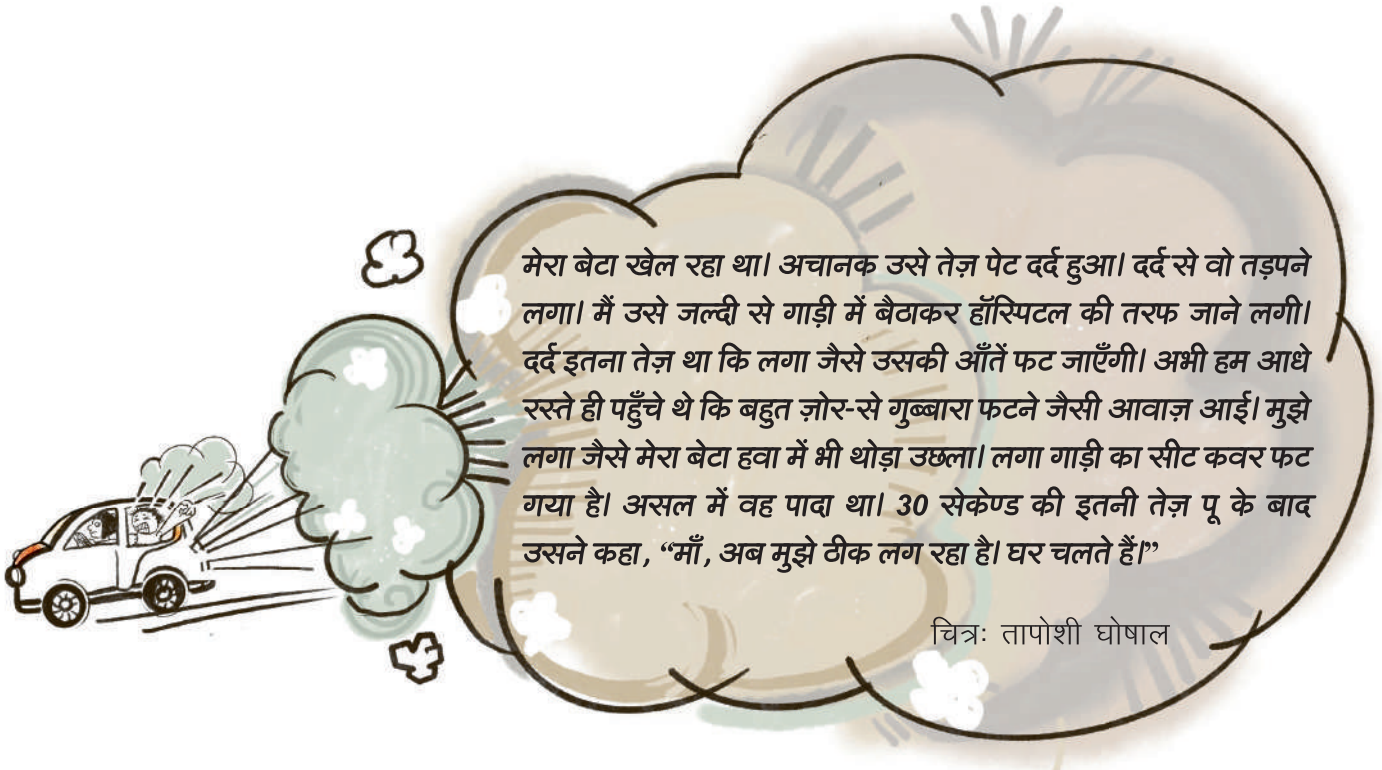 मेरा बेटा खेल रहा था। अचानक उसे तेज़ पेट दर्द हुआ। दर्द से वो तड़पने
लगा। मैं उसे जल्दी से गाड़ी में बैठाकर हॉस्पिटल की तरफ जाने लगी।
दर्द इतना तेज़ था कि लगा जैसे उसकी आँतें फट जाएँगी। अभी हम आधे
रस्ते ही पहुँचे थे कि बहुत ज़ोर-से गुब्बारा फटने जैसी आवाज़ आई। मुझे
लगा जैसे मेरा बेटा हवा में भी थोड़ा उछला। लगा गाड़ी का सीट कवर फट
गया है। असल में वह पादा था। 30 सेकेण्ड की इतनी तेज़ पू के बाद
उसने कहा, “माँ, अब मुझे ठीक लग रहा है। घर चलते हैं।”
चित्रः तापोशी घोषाल